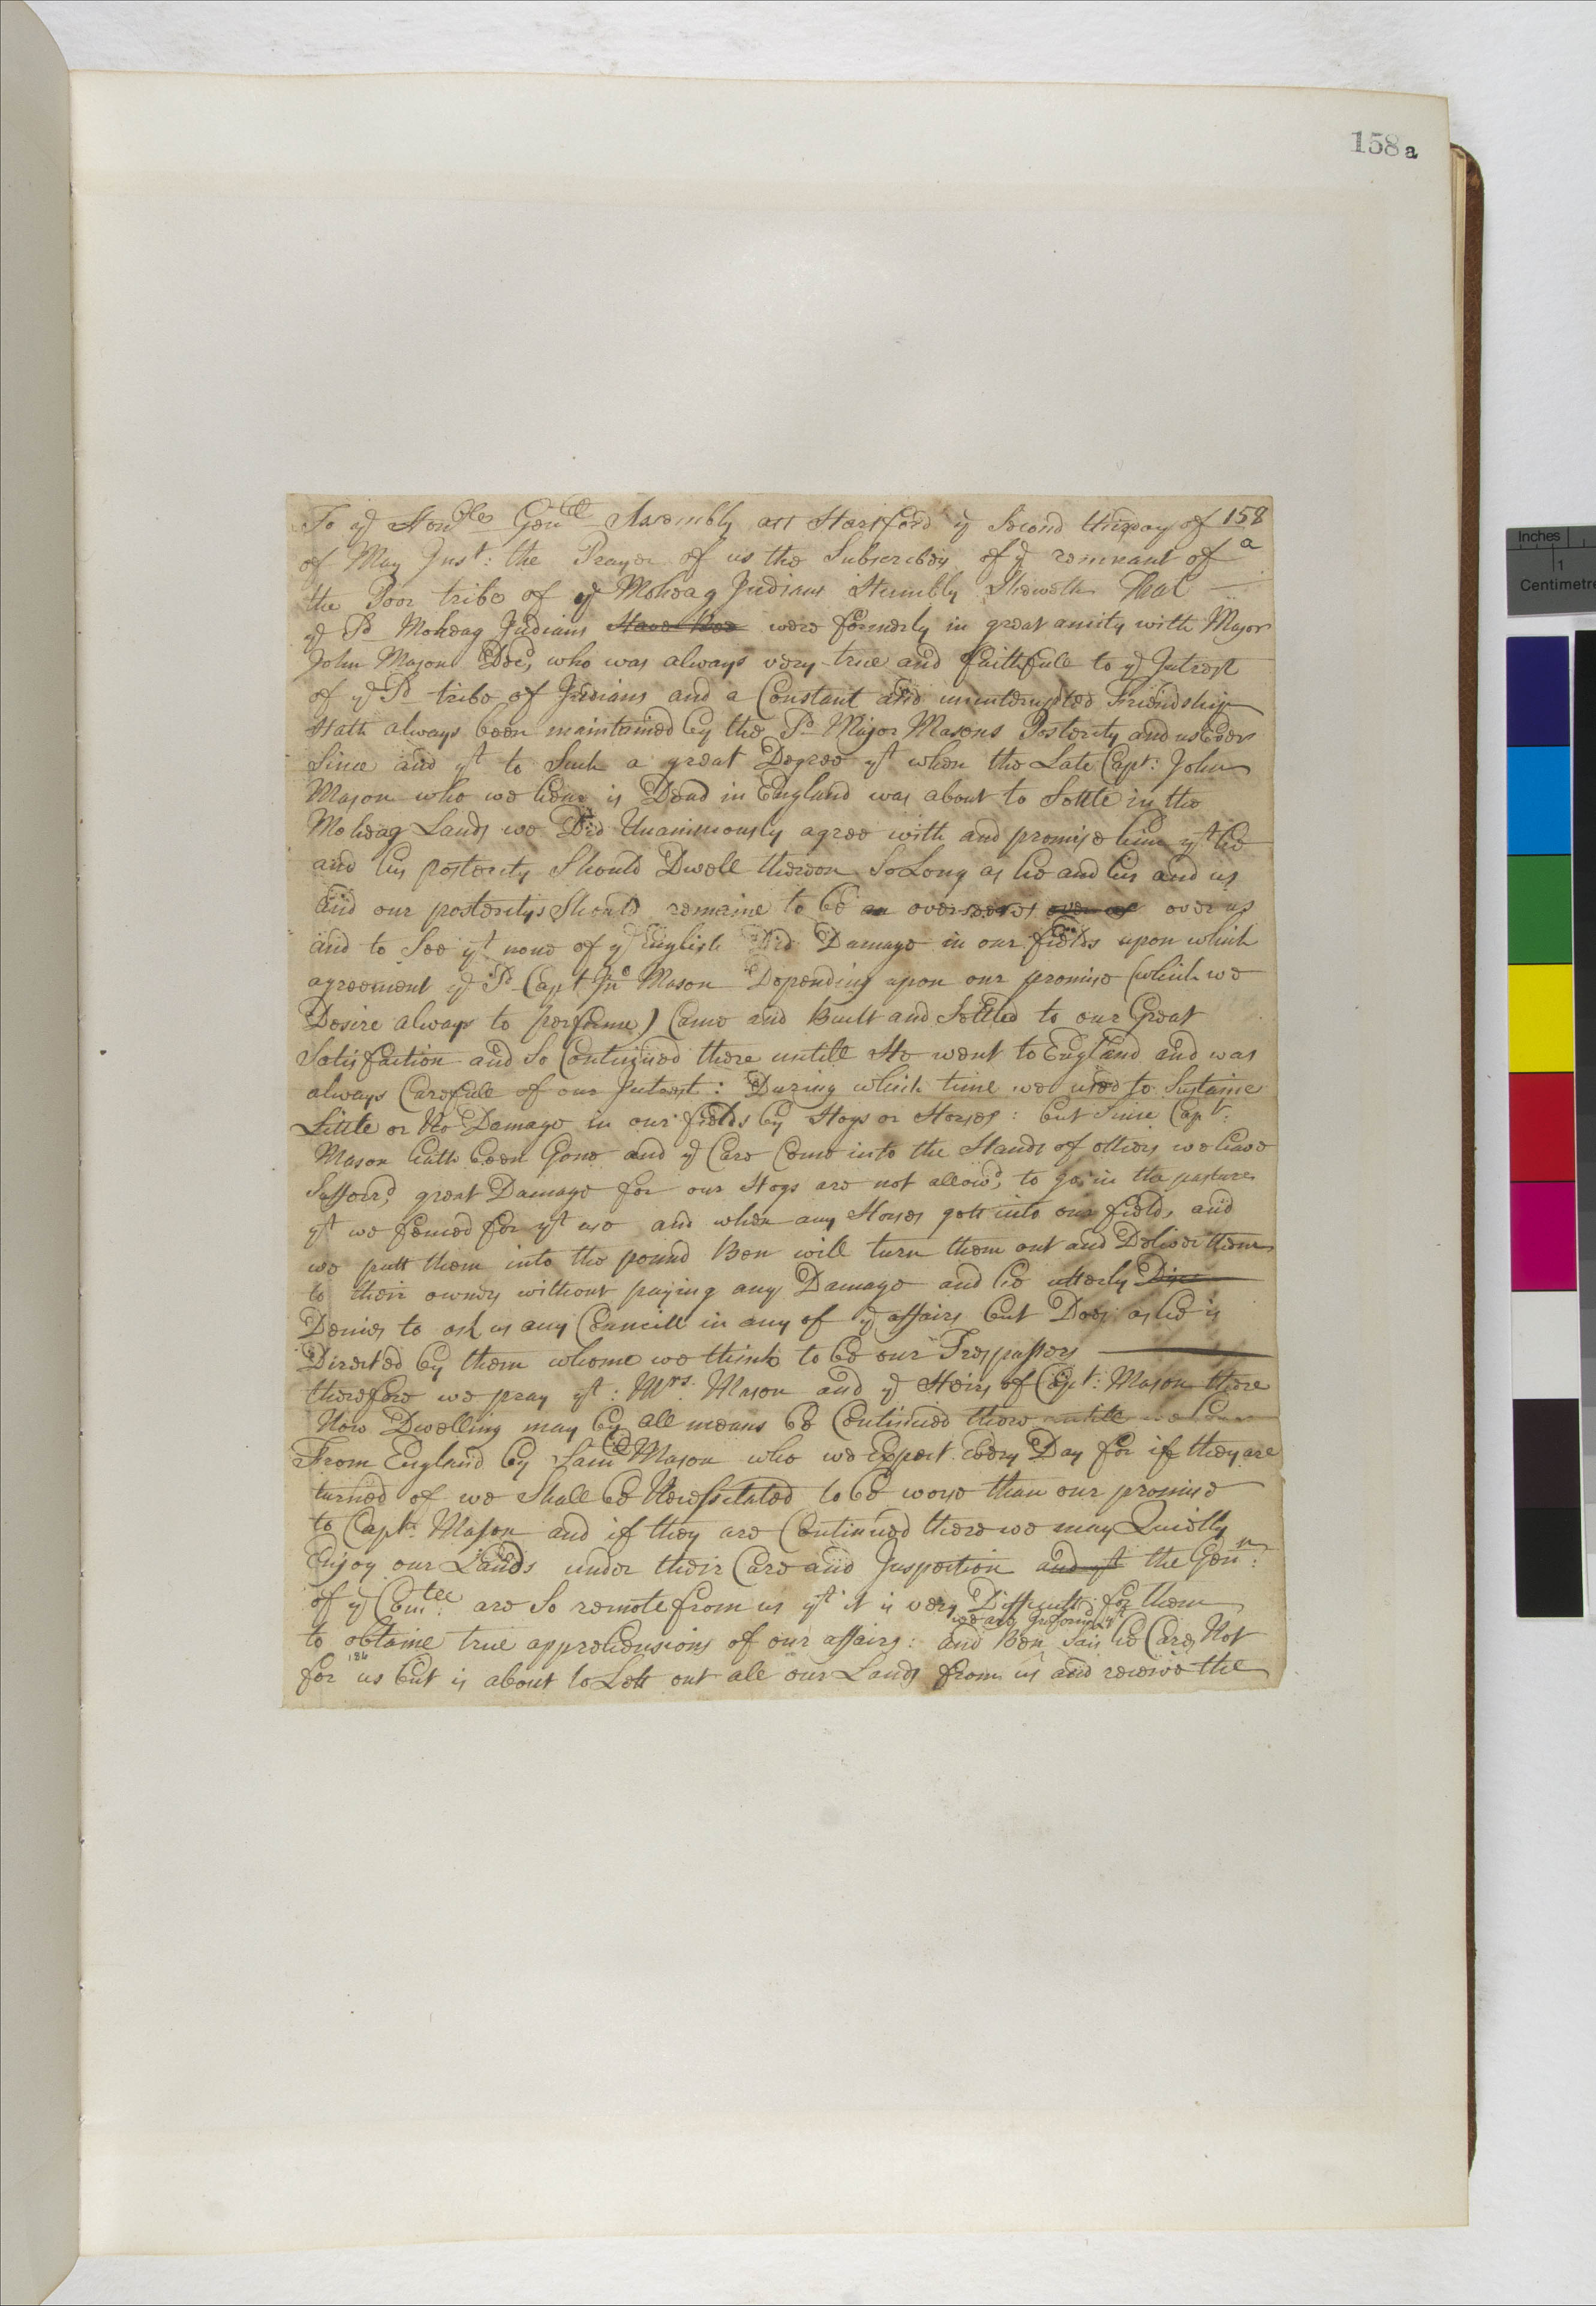 158a
To ye Honbles Genll Assembly att Hartford ye Second thirsday of 158
of May Inst: the Prayer of us the Subscribers of ye remnant of a
the Poor tribe of ye Moheag Indians Humbly Sheweth That
ye Sd Moheag Indians Have Bee were formerly in great amity with Major
John Mason Decd, who was always very true and faithfull to ye Intrest
of ye Sd tribe of Indians and a Constant and unenterupted Friendship
Hath always been maintained by the Sd Major Masons Posterity and us Ever
Since and yt to Such a great Degree yt when the Late Capt: John
Mason who we hear is Dead in England was about to Settle in the
Moheag Lands we Did Unanimously agree with and promise him yt he
and his posterity Should Dwell thereon So Long as he and his and us
and our posteritys Should remaine to be an overseers over us over us
and to See yt none of ye English Did Damage in our fields upon which
agreement ye Sd Capt Jno Mason Depending upon our promise (which we
Desire always to performe) Came and Built and Settled to our Great
Satisfaction and So Continued there untill He went to England and was
always Carefull of our Intrest: During which time we used to Sustaine
Little or No Damage in our fields by Hogs or Horses: but Since Capt:
Mason hath been Gone and ye Care Come into the Hands of others we have
Sufferd great Damage for our Hogs are not allowd, to go in the pasture
yt we fenced for yt use and when any Horses gott into our fields and
we putt them into the pound Ben will turn them out and Deliver them
to their owners without paying any Damage and he utterly
Denies to ask us any Councill in any of ye affairs but Does as he is
Directed by them whome we think to be our Trespassers
therefore we pray yt: Mrs. Mason and ye Heirs of Capt: Mason there
Now Dwelling may by all means be Continued there untill we hear
From England by Samll Mason who we Expect Every Day for if they are
turned of we Shall be Necessitated to be worse than our promise
to Capt. Mason and if they are Continued there we may Quietly
Enjoy our Lands under their Care and Inspection and yt the Genn:
of ye Comtee: are So remote from us yt it is very Difficult for them
we are Informed yt
to obtaine true apprehensions of our affairs: and Ben Sais he Cares Not
186
for us but is about to Lett out all our Lands from us and receive the
Inches
1
Centimetre